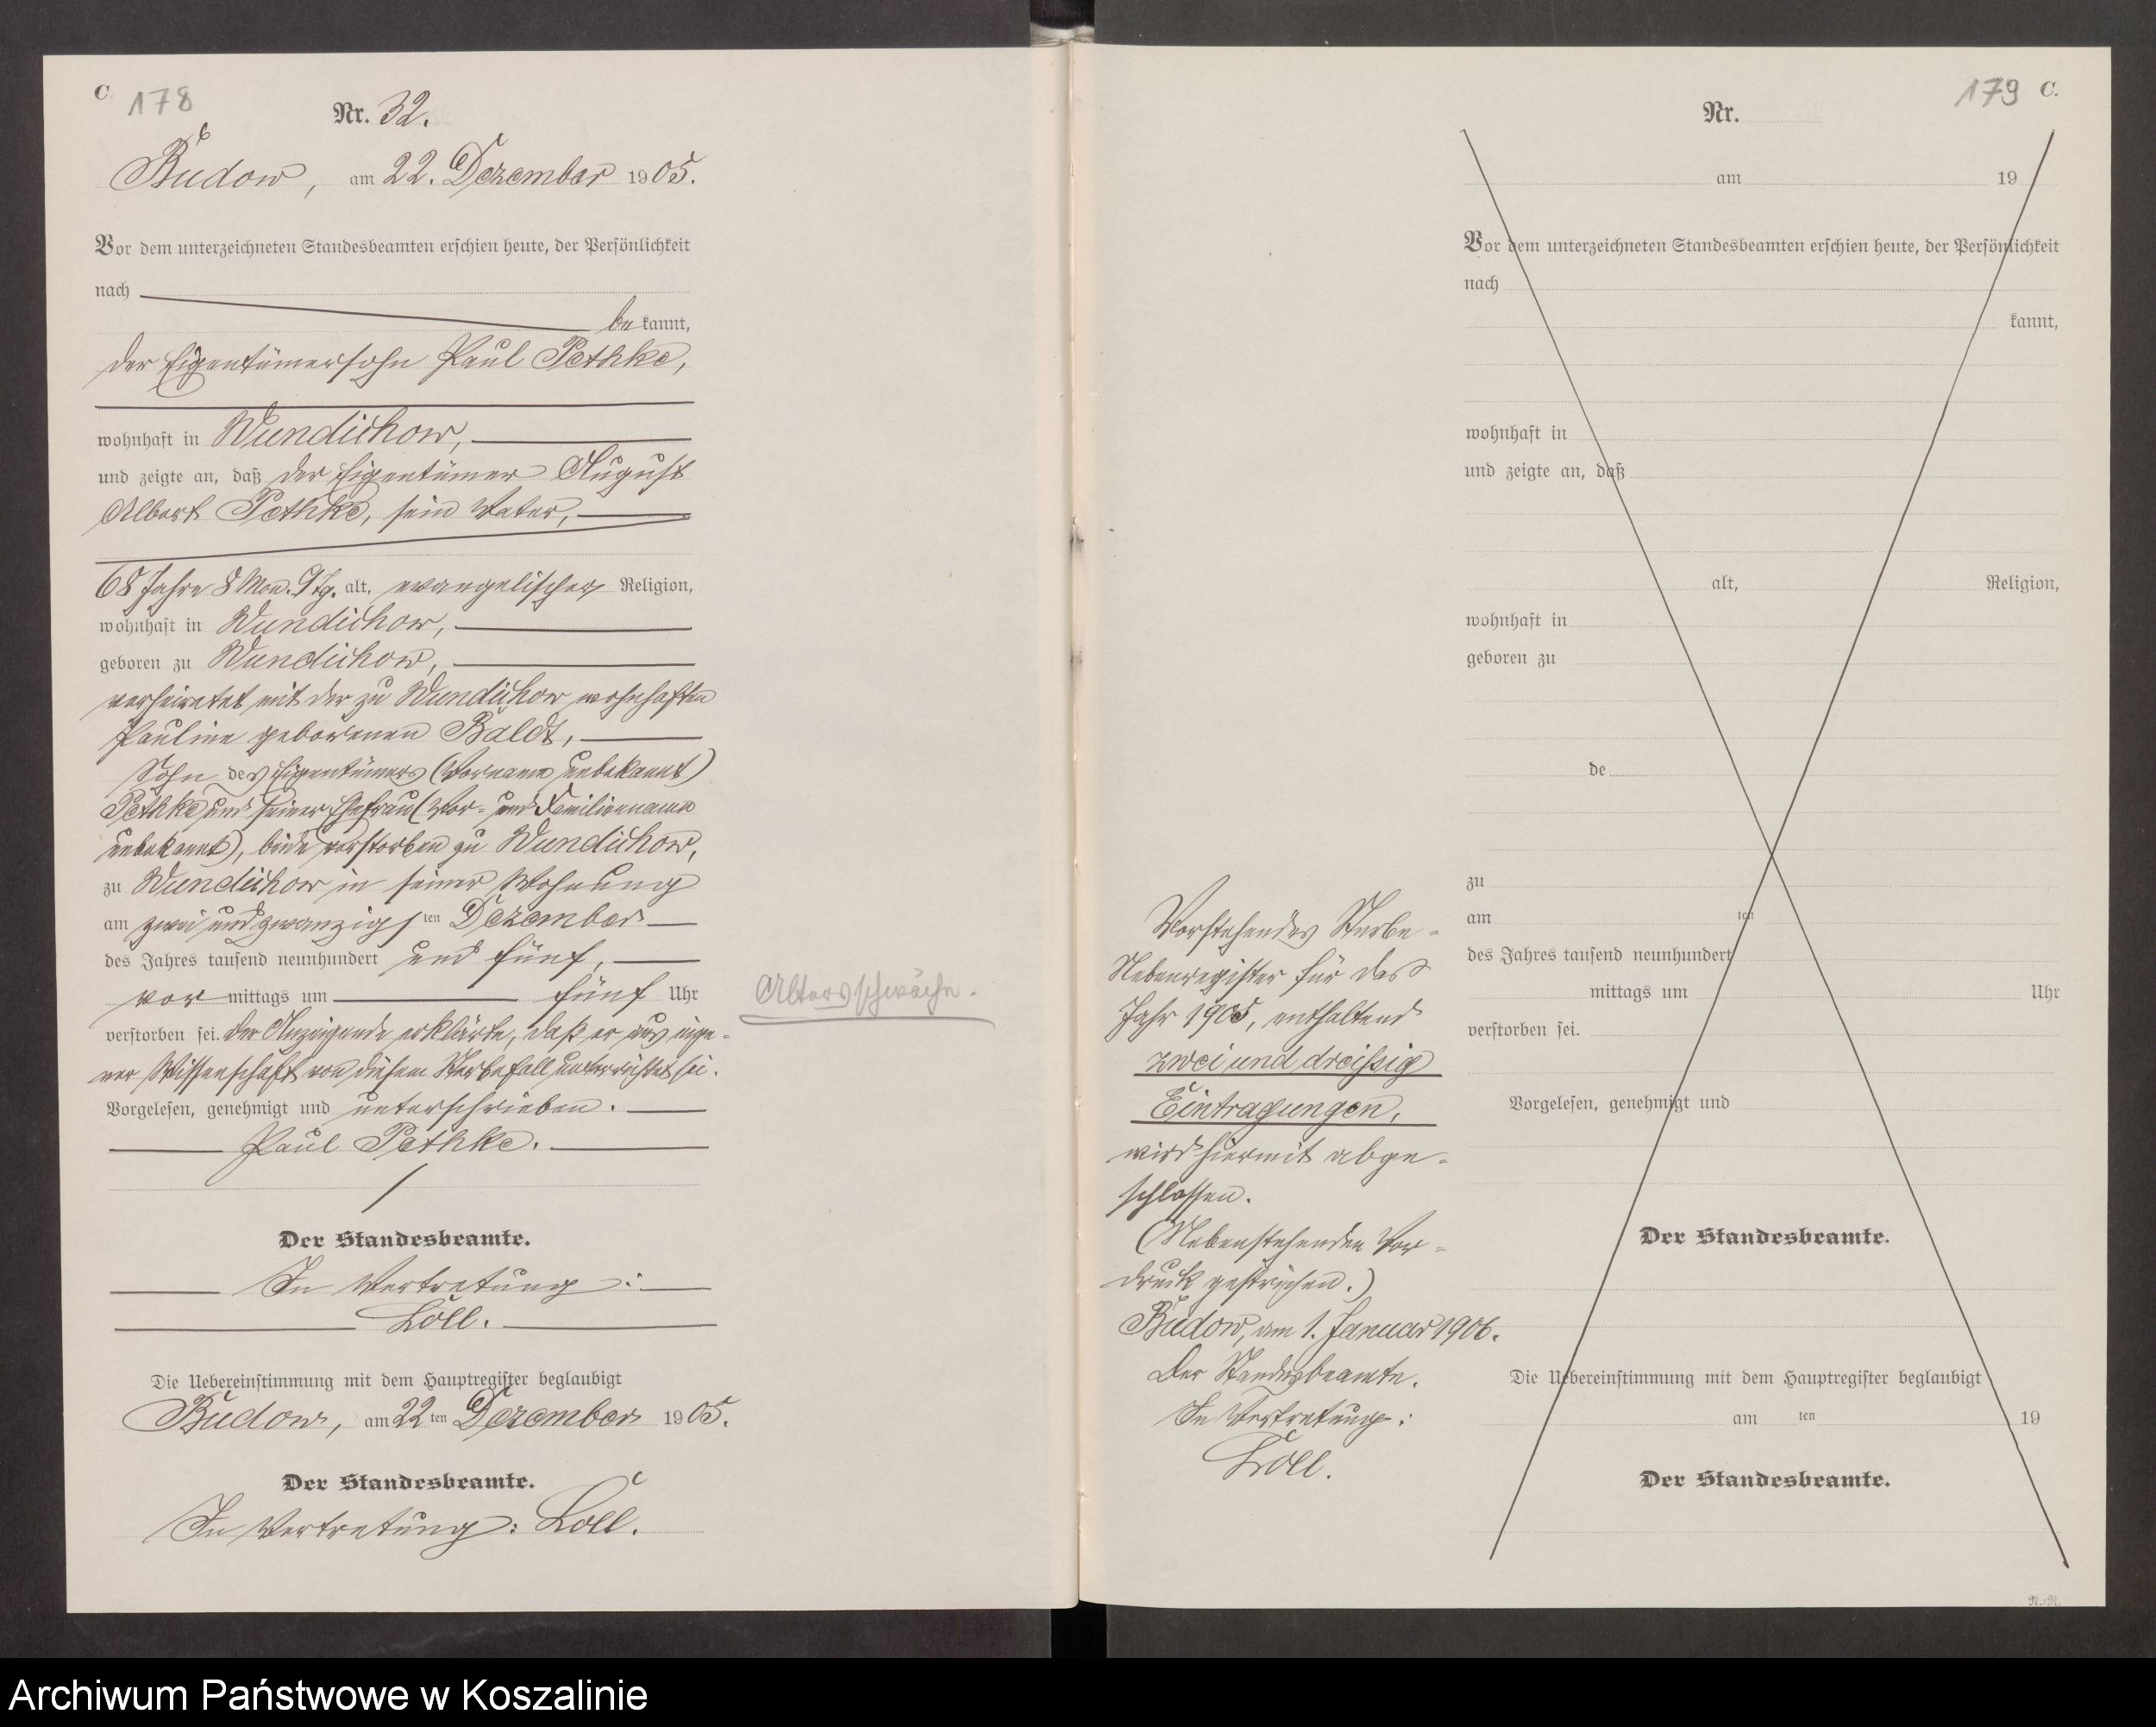 C. 178
Nr. 32.
Budow, am 22. Dezember 1905.
Vor dem unterzeichneten Standesbeamten erschien heute, der Persönlichkeit
nach
bekannt,
der Eigentümersohn Paul Pethke,
wohnhaft in Wundichow,
und zeigte an, daß der Eigentümer August
Albert Pethke, sein Vater,
68 Jahre 8 Mon. 9 Tg. alt, evangelischer Religion,
wohnhaft in Wundichow,
geboren zu Wundichow,
verheiratet mit der zu Wundichow wohnhaften
Pauline geborenen Baldt,
Sohn des Eigentümers (Vorname unbekannt)
Pethke und seiner Ehefrau (Vor- und Familienname
unbekannt), beide verstorben zu Wundichow,
zu Wundichow in seiner Wohnung
am zwei und zwanzigsten Dezember
des Jahres tausend neunhundert und fünf,
vormittags um fünf Uhr
verstorben sei. Der Anzeigende erklärte, daß er aus eige-
ner Wissenschaft von diesem Sterbefall unterrichtet sei.
Vorgelesen, genehmigt und unterschrieben.
Paul Pethke.
Der Standesbeamte.
In Vertretung:
Loll.
Die Uebereinstimmung mit dem Hauptregister beglaubigt
Budow, am 22ten Dezember 1905.
Der Standesbeamte.
In Vertretung: Loll.
Altersschwäche.
179 C.
Nr.
am 19
Vor dem unterzeichneten Standesbeamten erschien heute, der Persönlichkeit
nach
kannt,
wohnhaft in
und zeigte an, daß
alt, Religion,
wohnhaft in
geboren zu
de
zu
am ten
des Jahres tausend neunhundert
mittags um Uhr
verstorben sei.
Vorgelesen, genehmigt und
Der Standesbeamte.
Die Uebereinstimmung mit dem Hauptregister beglaubigt
am ten 19
Der Standesbeamte.
Vorstehendes Sterbe-
Nebenregister für das
Jahr 1905, enthaltend
zwei und dreissig
Eintragungen,
wird hiermit abge-
schlossen.
(Nebenstehenden Vor-
druck gestrichen.)
Budow, am 1. Januar 1906.
Der Standesbeamte.
In Vertretung:
Loll.
Archiwum Państwowe w Koszalinie